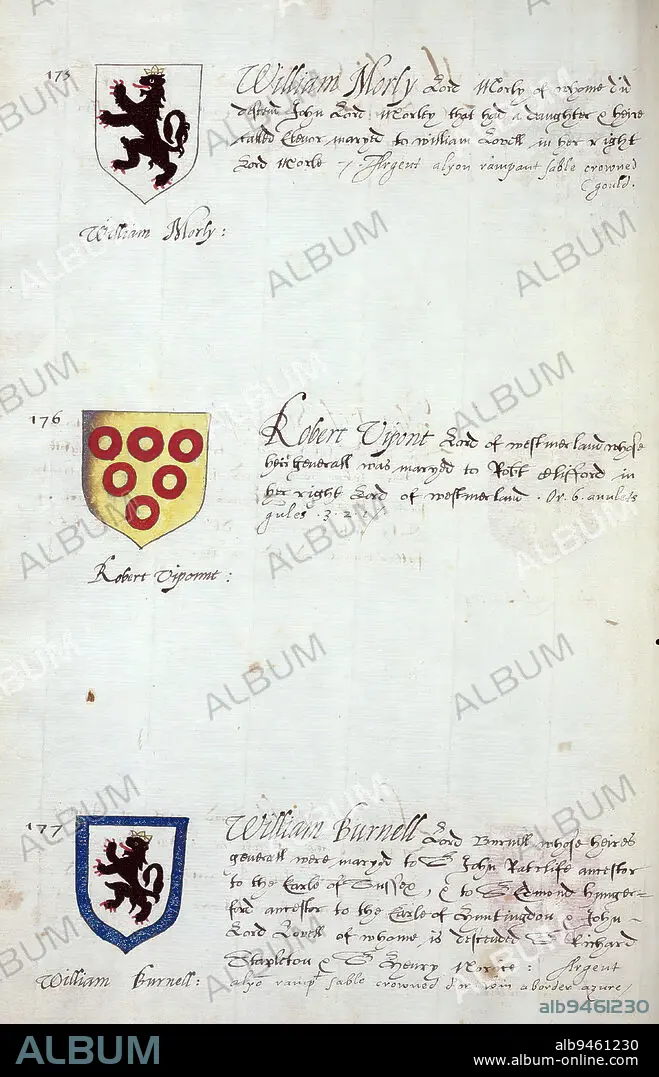 175
William Morly Lord Morly of whome did
John Lord Morley that had a daughter & heire
called maryed to William Lovell in her right
Lord Morle Argent a lyon rampant sable crowned
gould.
William Morly:
176
Robert Vipont Lord of westmerland whose
heir generall was maryed to Robt Clifford in
her right Lord of westmerland. Or. 6. anulets
gules. 3. 2.
Robert Viponnt:
177
William Burnell Lord Burnell whose heires
generall were maryed to Sr John Ratclife ancestor
to the Earle of Sussex, & to Sr Edmond Hunger=
ford ancestor to the Earle of Huntingdon & John
Lord Lovell of whome is descended Sr Richard
Stapleton & Sr Henry : Argent
a lyo ramp sable crowned a border azure/
William Burnell:
ALBUM
alb9461230
ALBUM
alb9461230
www.album-online.com